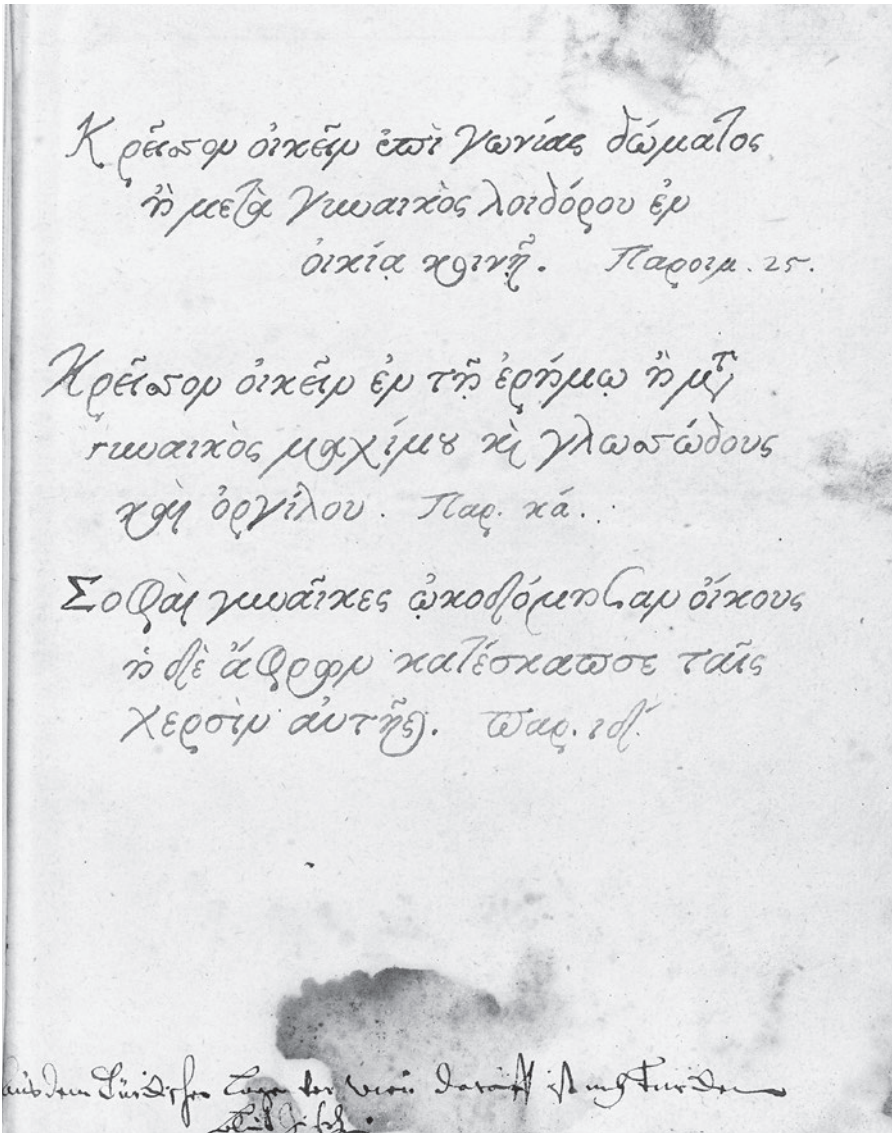 Κρεῖσσον οἰκεῖν ἐπὶ γωνίας δώματος
ἢ μετὰ γυναικὸς λοιδόρου ἐν
οἰκίᾳ κοινῇ. Παροιμ. 25.
Κρεῖσσον οἰκεῖν ἐν τῇ ἐρήμῳ ἢ μτ
γυναικὸς μαχίμου κὶ γλωσσώδους
καὶ ὀργίλου. Παρ. κά.
Σοφαὶ γυναῖκες ᾠκοδόμησαν οἴκους
ἡ δὲ ἄφρων κατέσκαπσε ταῖς
χερσὶν αὐτῆς. Παρ. ιδ.
aus dem Türckischen Lager vor wien ist